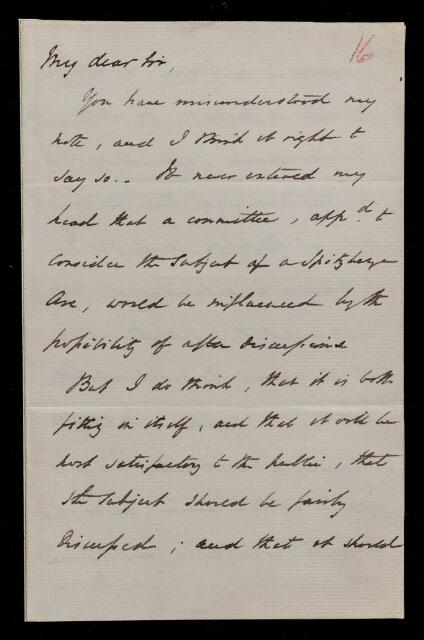 16
My dear Sir,
You have misunderstood my
note, and I think it right to
say so.. It never entered my
head that a committee, app.d to
consider the subject of a Spitzbergen
Arc, would be influenced by the
possibility of after discussions
But I do think, that it is both
fitting in itself, and that it will be
most satisfactory to the public, that
the subject should be fairly
discussed; and that it should